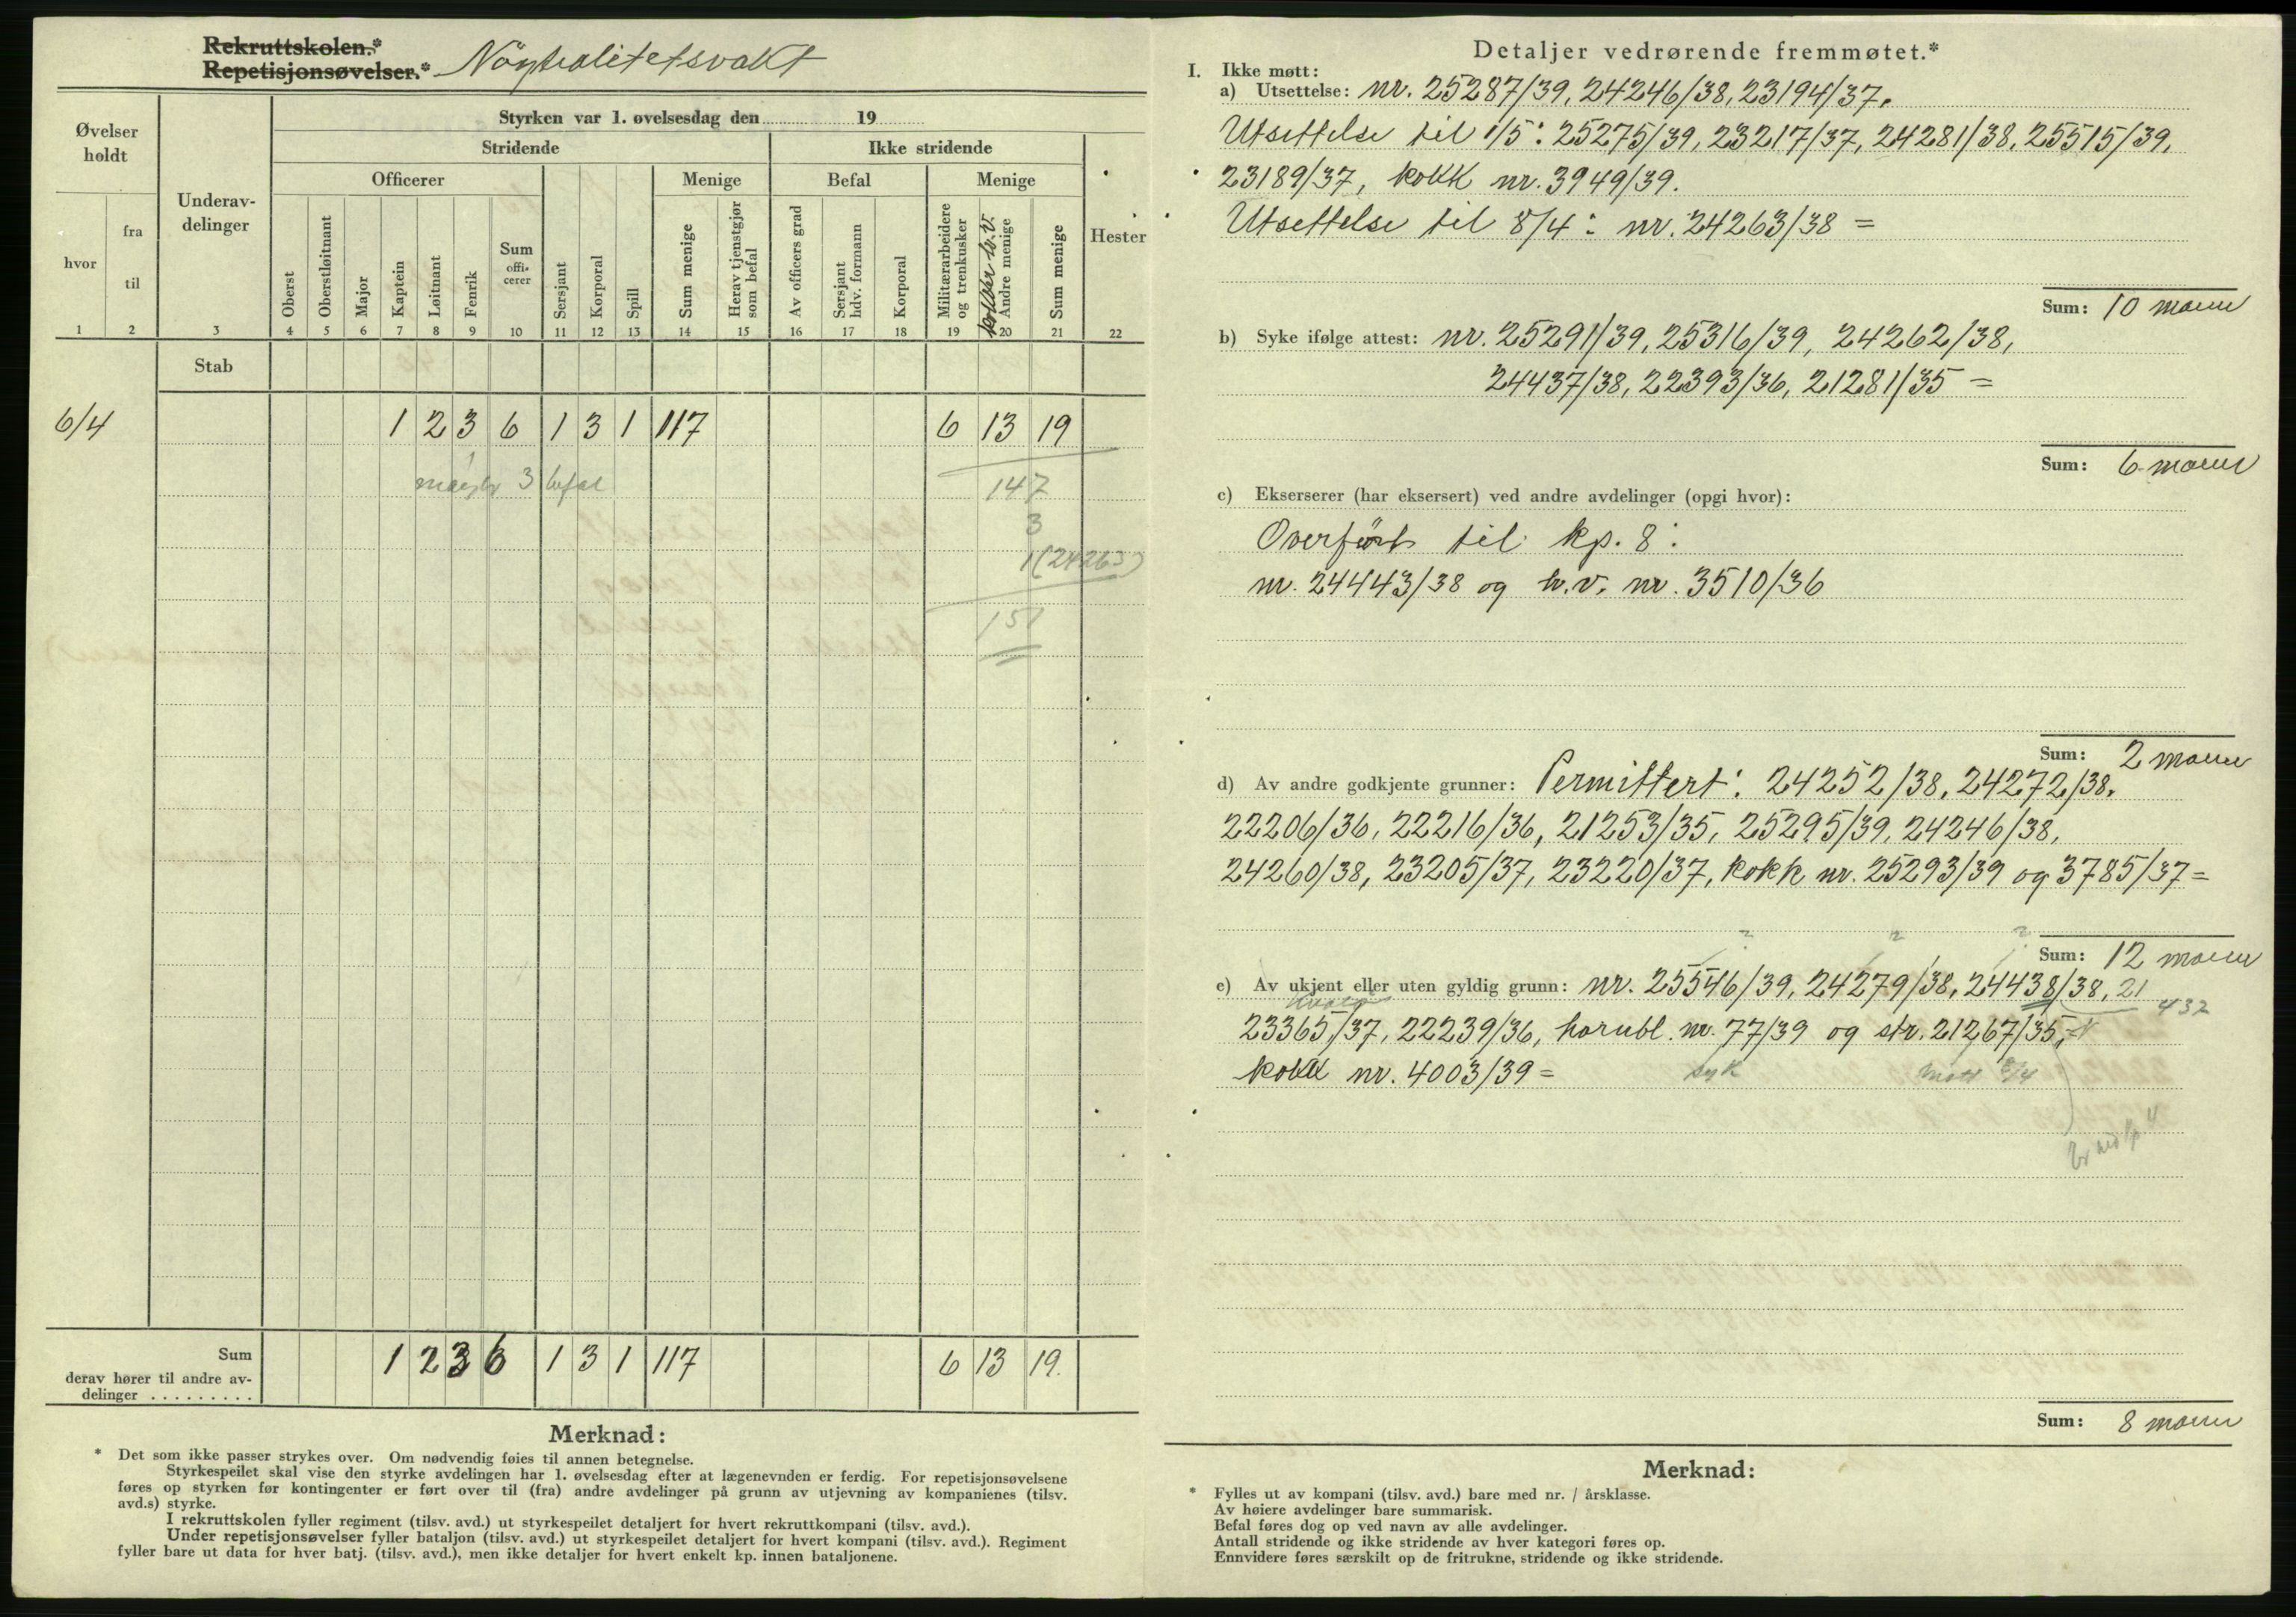 Rekruttskolen.*
Repetisjonsøvelser.* Nöytralitetsvakt
Øvelser holdt
hvor
fra
til
Underav-
delinger
Styrken var 1. øvelsesdag den 19
Stridende
Ikke stridende
Officerer
Menige
Befal
Menige
Hester
Oberst
Oberstløitnant
Major
Kaptein
Løitnant
Fenrik
Sum
offi-
cerer
Sersjant
Korporal
Spill
Sum menige
Herav tjenstgjør
som befal
Av officers grad
Sersjant
hdv. formann
Korporal
Militærarbeidere
og trenkusker
kokker h.v.
Andre menige
Sum menige
1 2 3 4 5 6 7 8 9 10 11 12 13 14 15 16 17 18 19 20 21 22
Stab
6/4 1 2 3 6 1 3 1 117 6 13 19
mangler 3 befal 147
3
1 (24263)
151
Sum 1 2 3 6 1 3 1 117 6 13 19.
derav hører til andre av-
delinger . . . . . . . . .
Merknad:
* Det som ikke passer strykes over. Om nødvendig føies til annen betegnelse.
Styrkespeilet skal vise den styrke avdelingen har 1. øvelsesdag efter at lægenevnden er ferdig. For repetisjonsøvelsene
føres op styrken før kontingenter er ført over til (fra) andre avdelinger på grunn av utjevning av kompanienes (tilsv.
avd.s) styrke.
I rekruttskolen fyller regiment (tilsv. avd.) ut styrkespeilet detaljert for hvert rekruttkompani (tilsv. avd.).
Under repetisjonsøvelser fyller bataljon (tilsv. avd.) ut styrkespeilet detaljert for hvert kompani (tilsv. avd.). Regiment
fyller bare ut data for hver batj. (tilsv. avd.), men ikke detaljer for hvert enkelt kp. innen bataljonene.
Detaljer vedrørende fremmøtet.*
I. Ikke møtt:
a) Utsettelse: nr. 25287/39, 24246/38, 23194/37.
Utsettelse til 1/5: 25275/39, 23217/37, 24281/38, 25515/39,
23189/37, kokk nr. 3949/39.
Utsettelse til 8/4: nr. 24263/38 =
Sum: 10 mann
b) Syke ifølge attest: nr. 25291/39, 25316/39, 24262/38,
24437/38, 22393/36, 21281/35 =
Sum: 6 mann
c) Ekserserer (har eksersert) ved andre avdelinger (opgi hvor):
Overfört til kp. 8:
nr. 24443/38 og h.v. nr. 3510/36
Sum: 2 mann
d) Av andre godkjente grunner: Permittert: 24252/38, 24272/38,
22206/36, 22216/36, 21253/35, 25295/39, 24246/38,
24260/38, 23205/37, 23220/37, kokk nr. 25293/39 og 3785/37 =
Sum: 12 mann
e) Av ukjent eller uten gyldig grunn: nr. 25546/39, 24279/38, 24438/38, 21
432
23365/37, 22239/36, hornbl. nr. 77/39 og str. 21267/35,
kokk nr. 4003/39 = syk møtt 8/4
Sum: 8 mann
Merknad:
* Fylles ut av kompani (tilsv. avd.) bare med nr. / årsklasse.
Av høiere avdelinger bare summarisk.
Befal føres dog op ved navn av alle avdelinger.
Antall stridende og ikke stridende av hver kategori føres op.
Ennvidere føres særskilt op de fritrukne, stridende og ikke stridende.